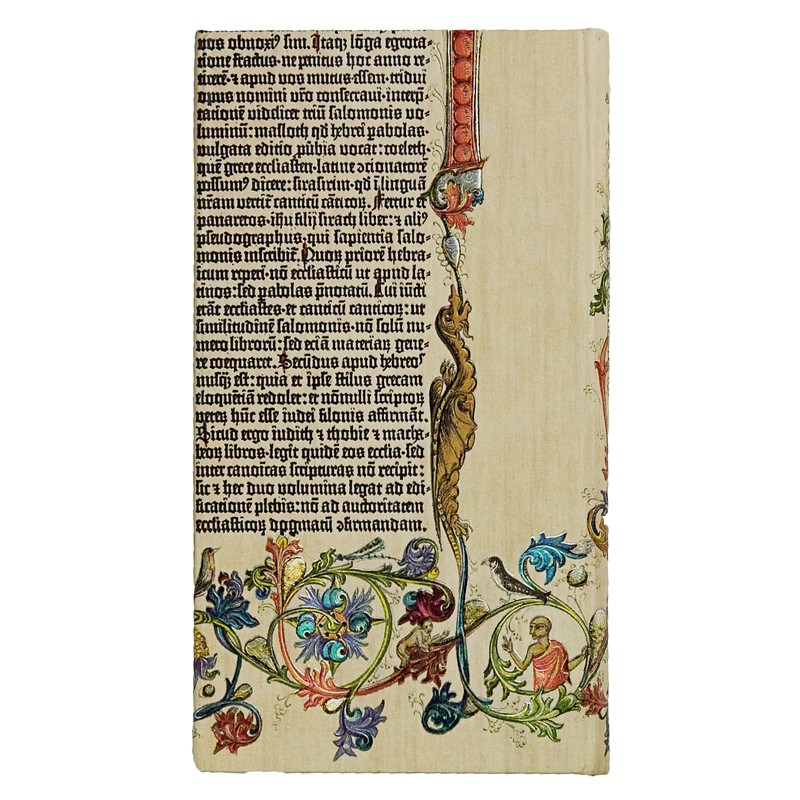 nos obnoxiꝰ sim. Itaqꝫ lõga egrota-
tione fractus· ne penitus hoc anno re-
ticerē· ⁊ apud vos mutus essem· tridui
opus nomini vr̄o consecraui· interp̄-
tationē videlicet triū salomonis vo-
luminū: masloth qd̄ hebrei ꝑabolas·
vulgata editio ꝓūbia vocat: coeleth·
quē grece ecclīasten· latine ɔcionatorē
possumꝰ dicere: sirasirim· qd̄ ī linguā
nr̄am vertit̄ canticū cāticoꝝ. Fertur et
panaretos· ihū filij sirach liber: ⁊ aliꝰ
pseudographus· qui sapientia salo-
monis inscribit̄. Quoꝝ priorē hebra-
icum reperi· nō ecclīasticū ut apud la-
tinos: sed ꝑabolas p̄notatū. Cui iūcti
erāt ecclīastes· et canticū canticoꝝ: ut
similitudinē salomonis· nō solū nu-
mero librorū: sed eciā materiaꝝ gene-
re coequaret. Secūdus apud hebreos
nusqꝫ est: quia et ipse stilus grecam
eloquētiā redolet: et nōnulli scriptoꝝ
veteꝝ hūc esse iudei filonis affirmāt.
Sicud ergo iudith ⁊ thobie ⁊ macha-
beoꝝ libros· legit quidē eos ecclīa· sed
inter canoīcas scripturas nō recipit:
sic ⁊ hec duo volumina legat ad edi-
ficationē plebis: nō ad auctoritatem
ecclīasticoꝝ dogmatū ɔfirmandam.